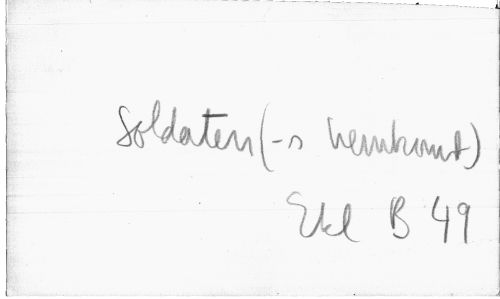 Soldaten (-s hemkomst)
Ekl B 49